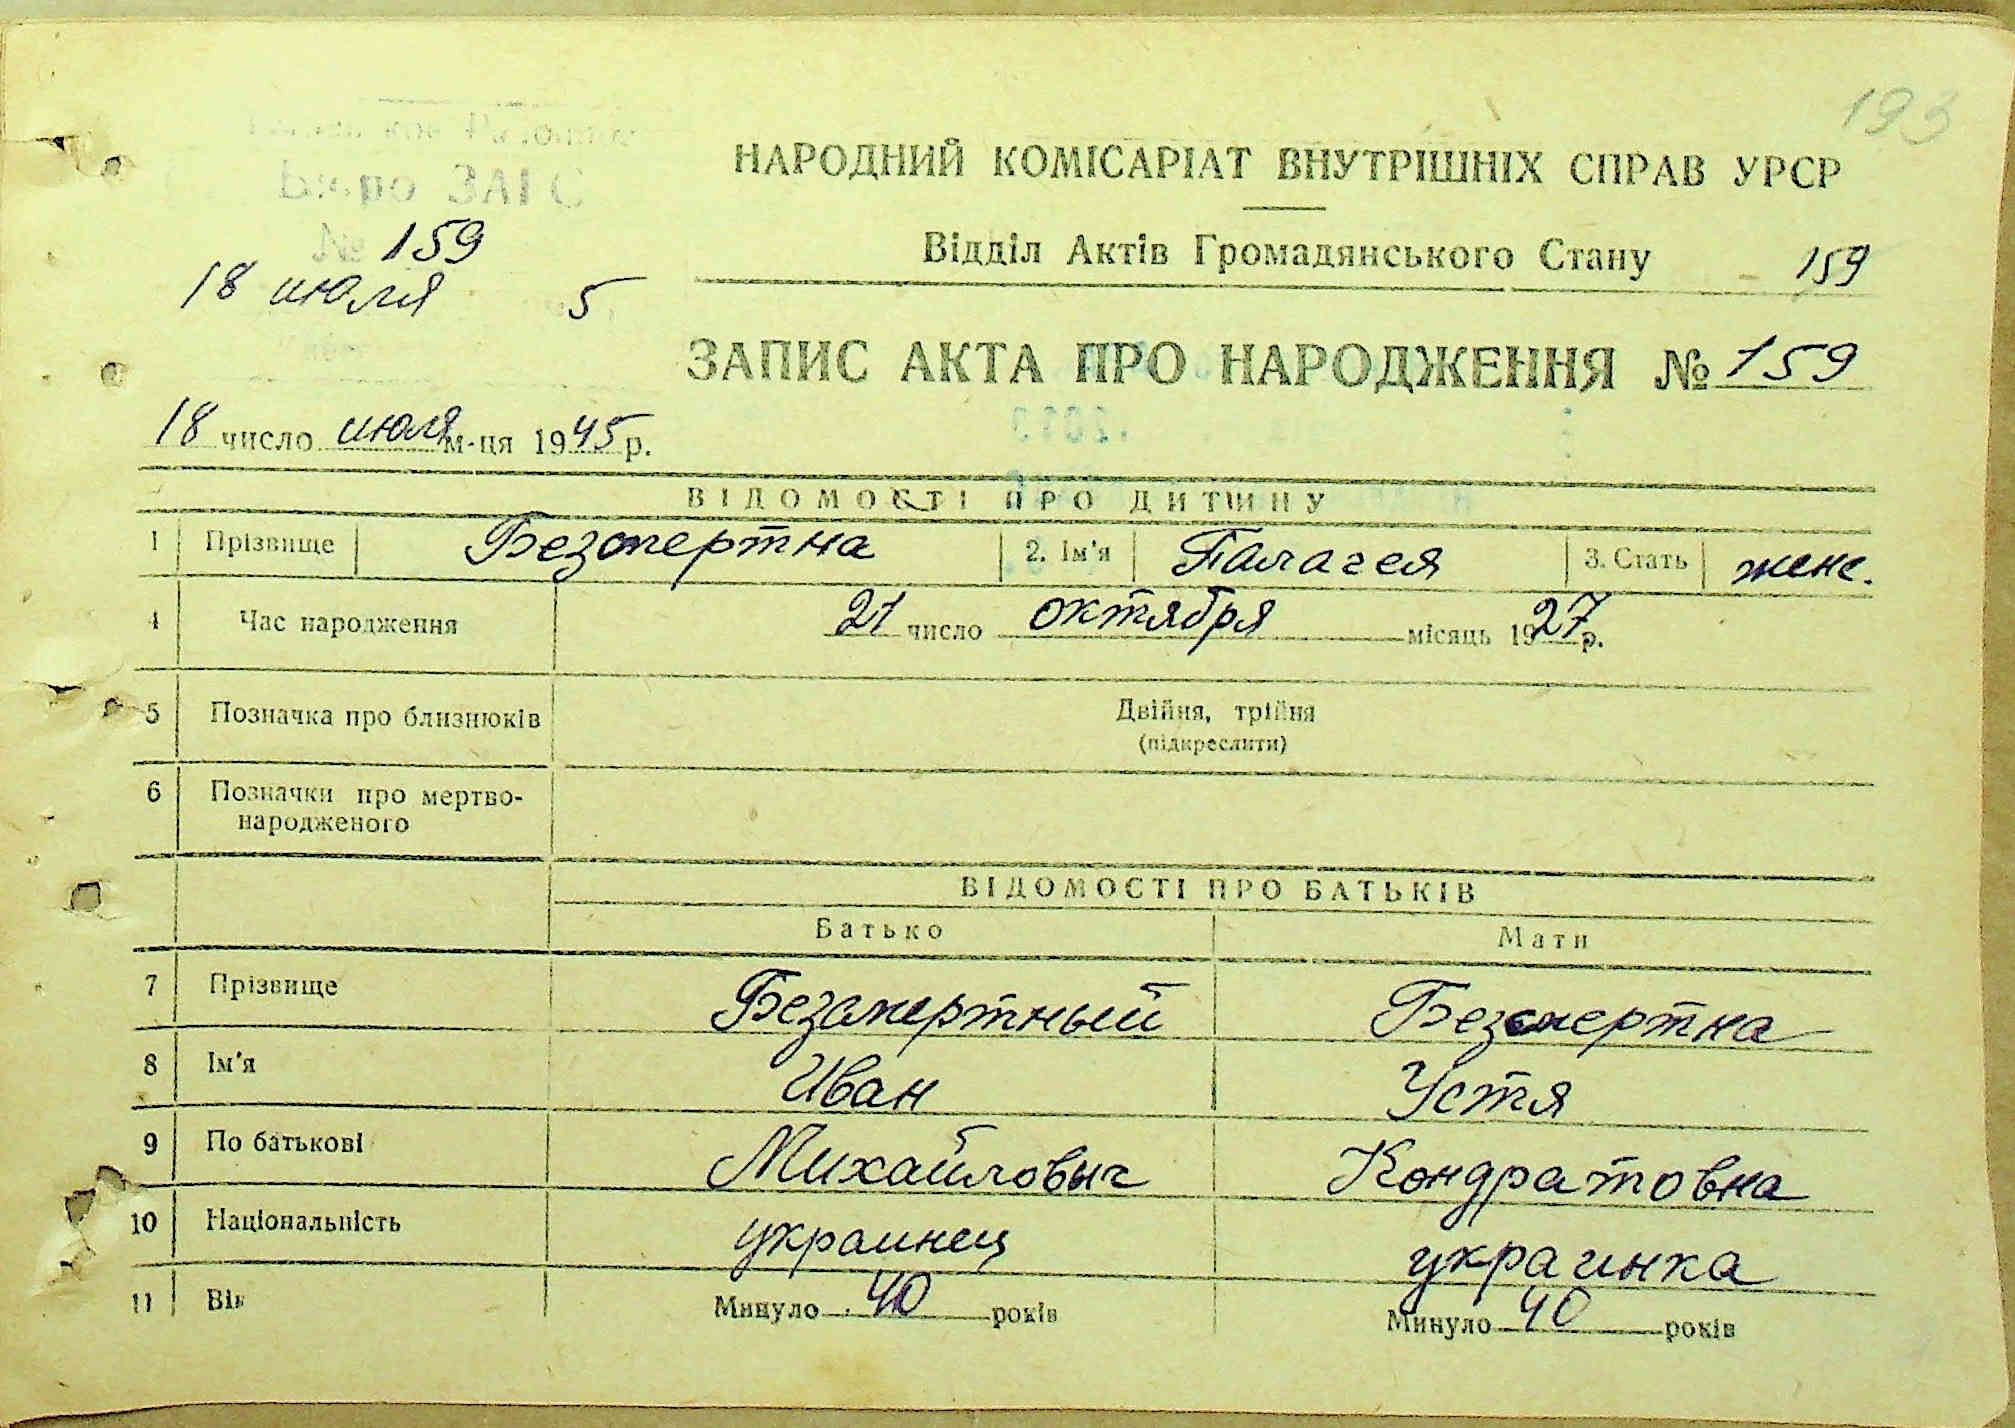 193
НАРОДНИЙ КОМІСАРІАТ ВНУТРІШНІХ СПРАВ УРСР
Бюро ЗАГС
№ 159
18 июля 5
Відділ Актів Громадянського Стану 159
ЗАПИС АКТА ПРО НАРОДЖЕННЯ № 159
18 число июля м-ця 1945 р.
ВІДОМОСТІ ПРО ДИТИНУ
1 Прізвище Безсмертна 2. Ім'я Палагея 3. Стать женс.
4 Час народження 21 число октября місяць 1927 р.
5 Позначка про близнюків Двійня, трійня
(підкреслити)
6 Позначки про мертво-
народженого
ВІДОМОСТІ ПРО БАТЬКІВ
Батько Мати
7 Прізвище Безсмертный Безсмертна
8 Ім'я Иван Устя
9 По батькові Михайловыч Кондратовна
10 Національність украинец украинка
11 Вік Минуло 40 років Минуло 40 років